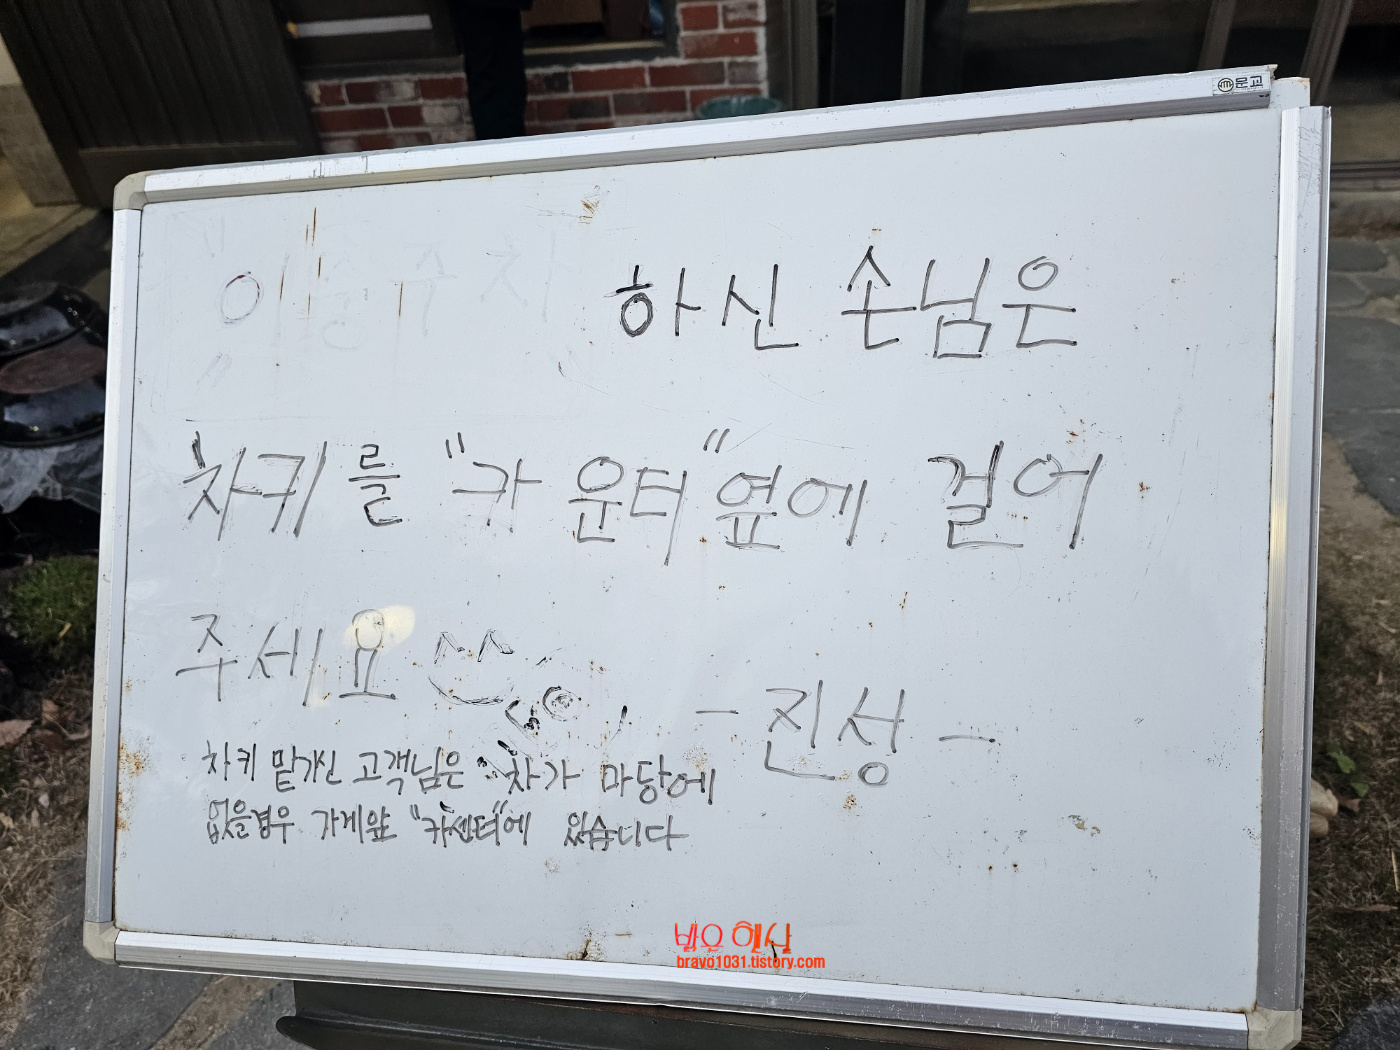 문교
이중주차 하신 손님은
차키를 "카운터" 옆에 걸어
주세요 ^^
- 진성 -
차키 맡기신 고객님은 차가 마당에
없을경우 가게앞 "카센터"에 있습니다
bravo1031.tistory.com